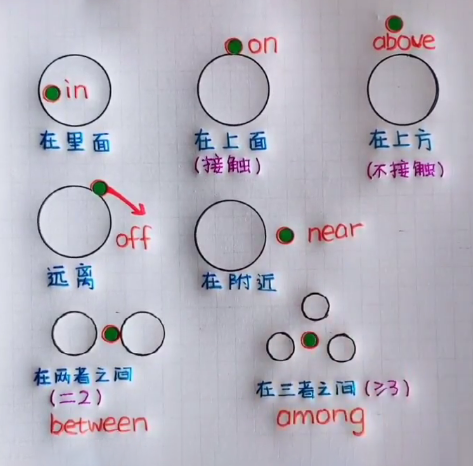 in
在里面
on
在上面
(接触)
above
在上方
(不接触)
off
远离
near
在附近
在两者之间
(=2)
between
在三者之间(≥3)
among